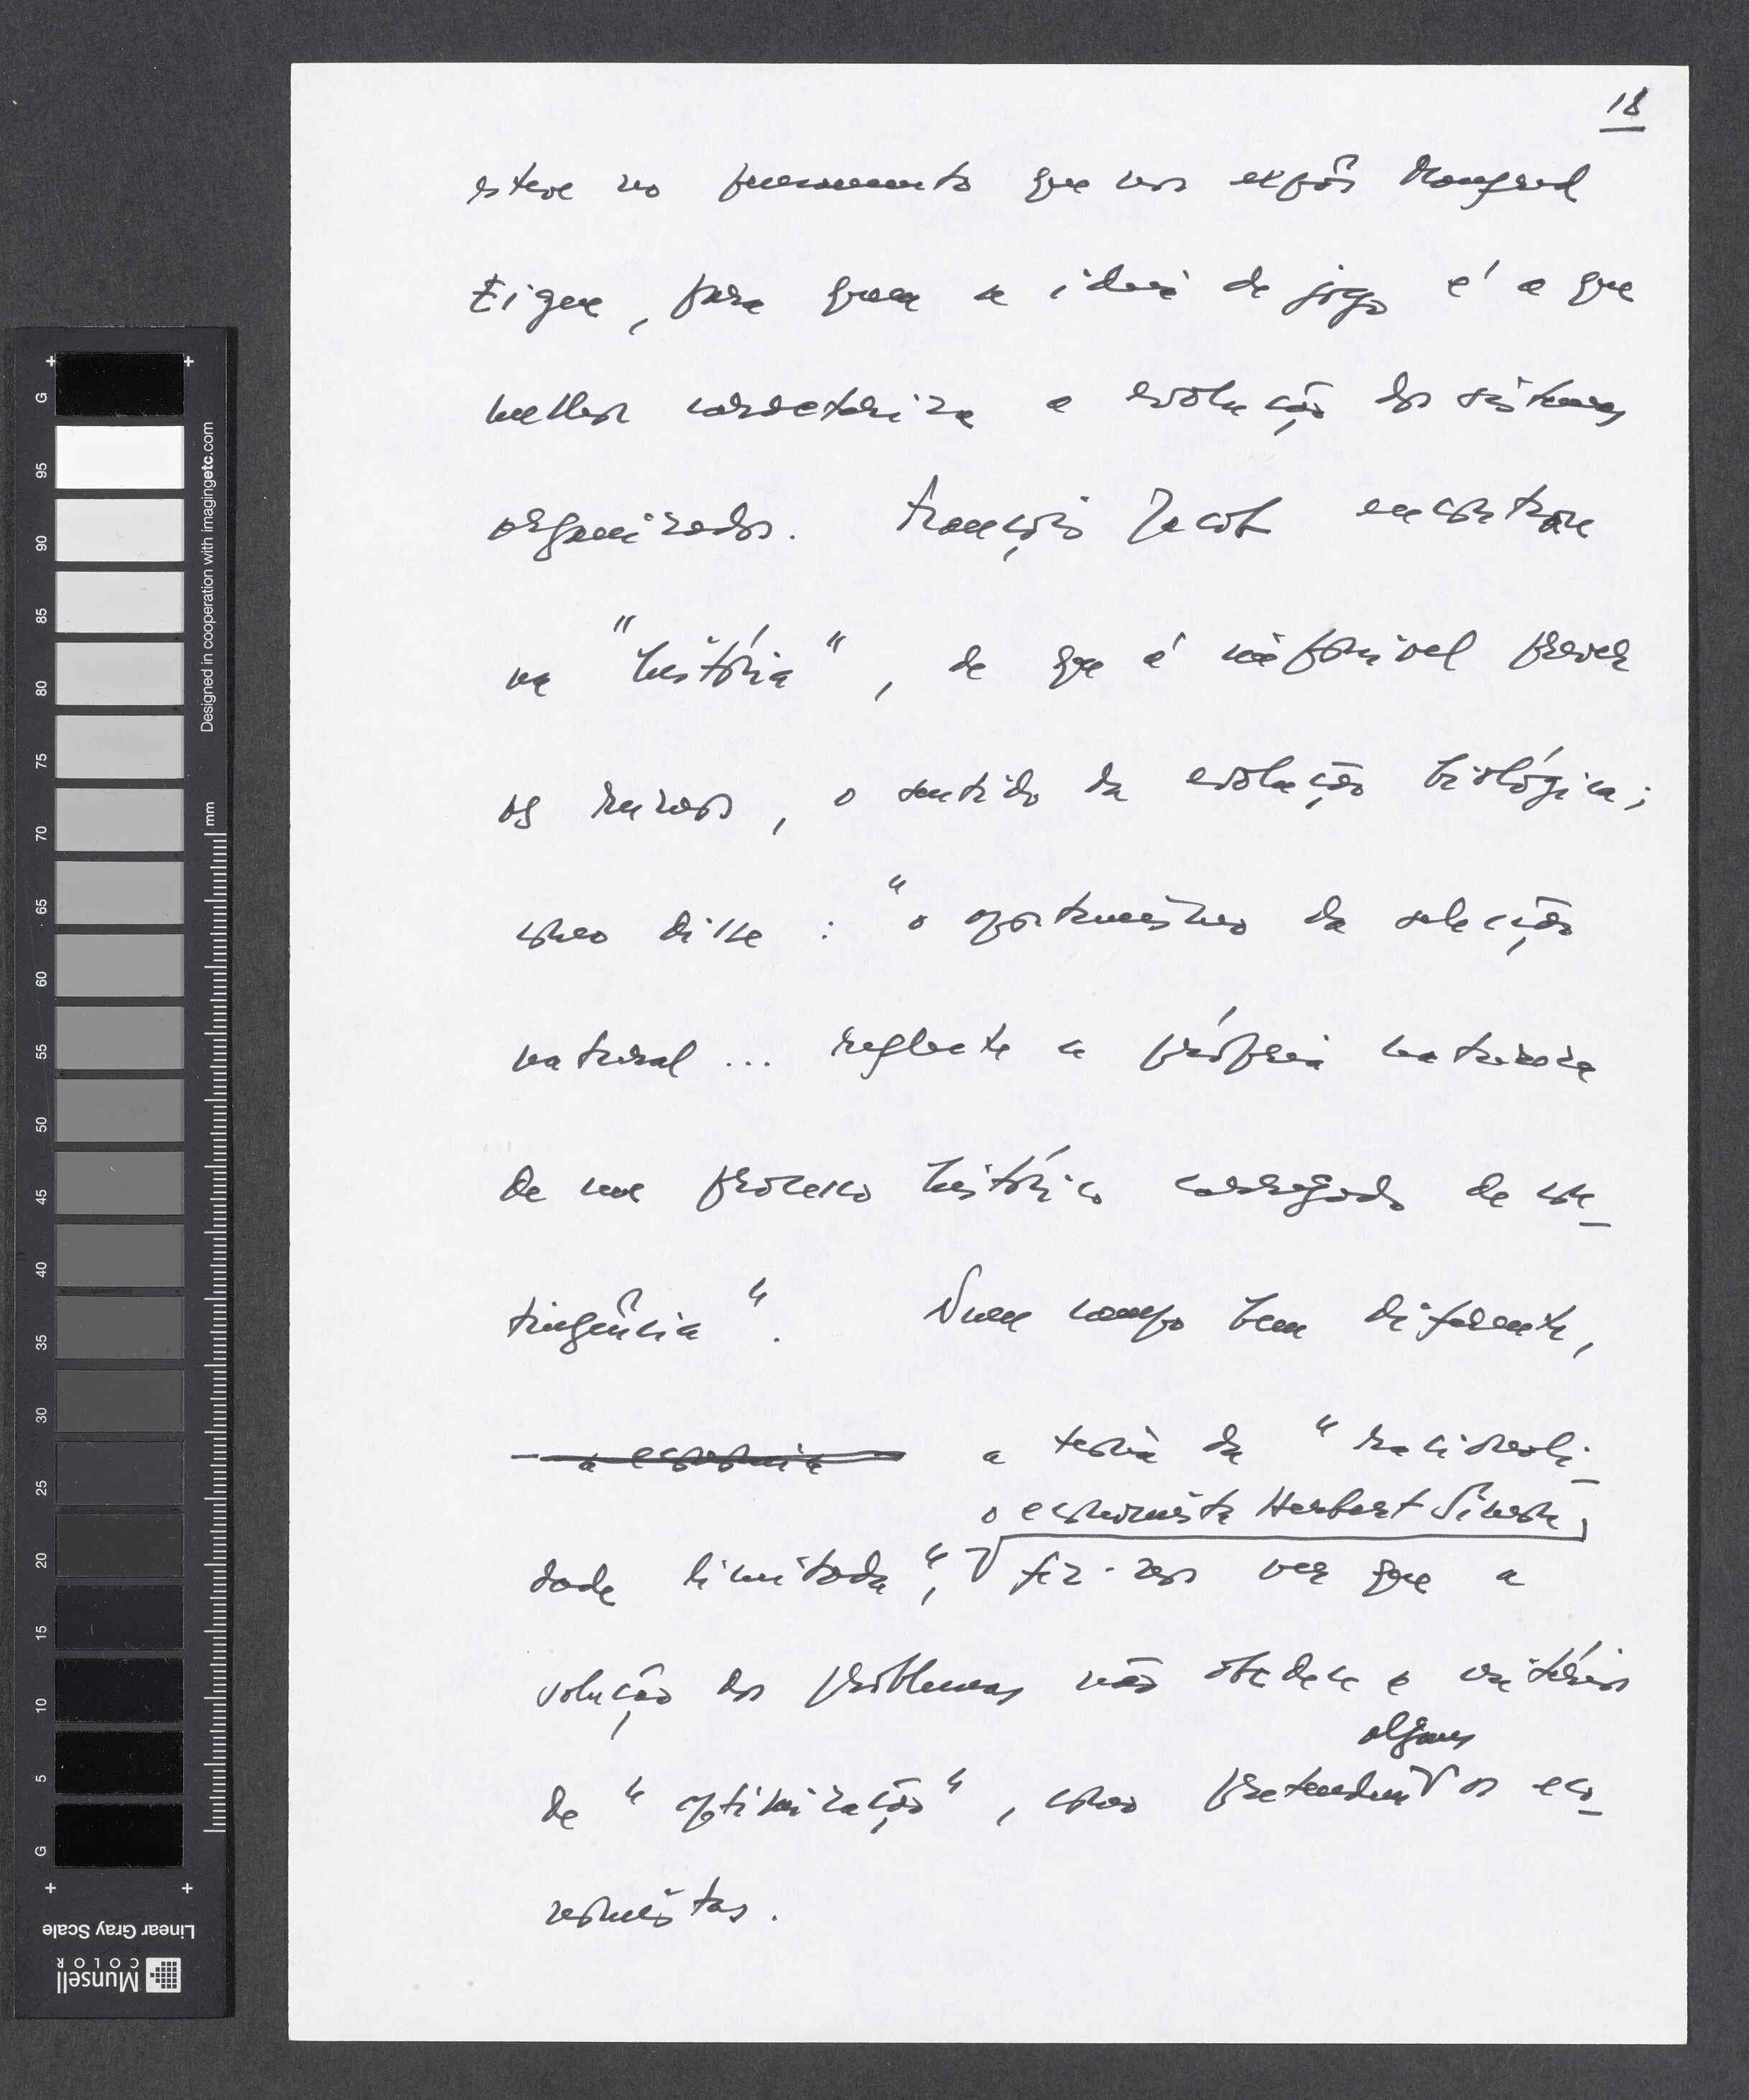 18
esteve no pensamento que nos expôs Manfred
Eigen, para quem a ideia de jogo é a que
melhor caracteriza a evolução dos sistemas
organizados. François Jacob encontrou
na "história", de que é impossível prever
os rumos, o sentido da evolução biológica;
como disse: "o oportunismo da selecção
natural... reflecte a própria natureza
de um processo histórico carregado de con-
tingência". Num campo bem diferente,
a economia a teoria da "racionali-
o economista Herbert Simon,
dade limitada", fez-nos ver que a
solução dos problemas não obedece a critérios
alguns
de "optimização", como pretendem os eco-
nomistas.
G
95
90
85
80
75
70
65
60
55
50
45
40
35
30
25
20
15
10
5
G
mm
Designed in cooperation with imagingetc.com
Linear Gray Scale
Munsell
COLOR